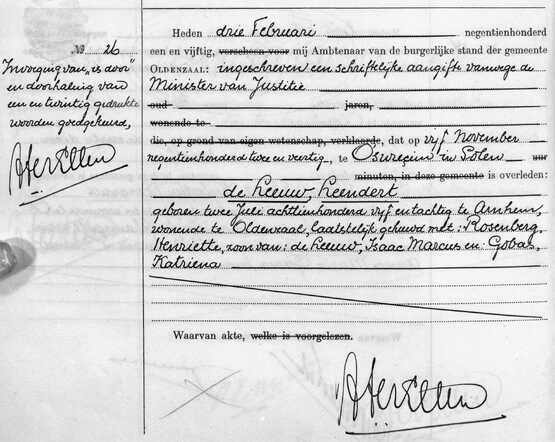 No. 26
Invoeging van „is door"
en doorhaling van
een en twintig gedrukte
woorden goedgekeurd,
Heden drie Februari negentienhonderd
een en vijftig, verscheen voor mij Ambtenaar van de burgerlijke stand der gemeente
OLDENZAAL: ingeschreven een schriftelijke aangifte vanwege de
Minister van Justitie
oud jaren,
wonende te
die, op grond van eigen wetenschap, verklaarde, dat op vijf November
negentienhonderd twee en veertig, te Oswieçim in Polen uur
minuten, in deze gemeente is overleden:
de Leeuw, Leendert
geboren twee Juli achttienhonderd vijf en tachtig te Arnhem,
wonende te Oldenzaal, laatstelijk gehuwd met: Rosenberg,
Henriette, zoon van: de Leeuw, Isaac Marcus en: Gobas,
Katriena
Waarvan akte, welke is voorgelezen.